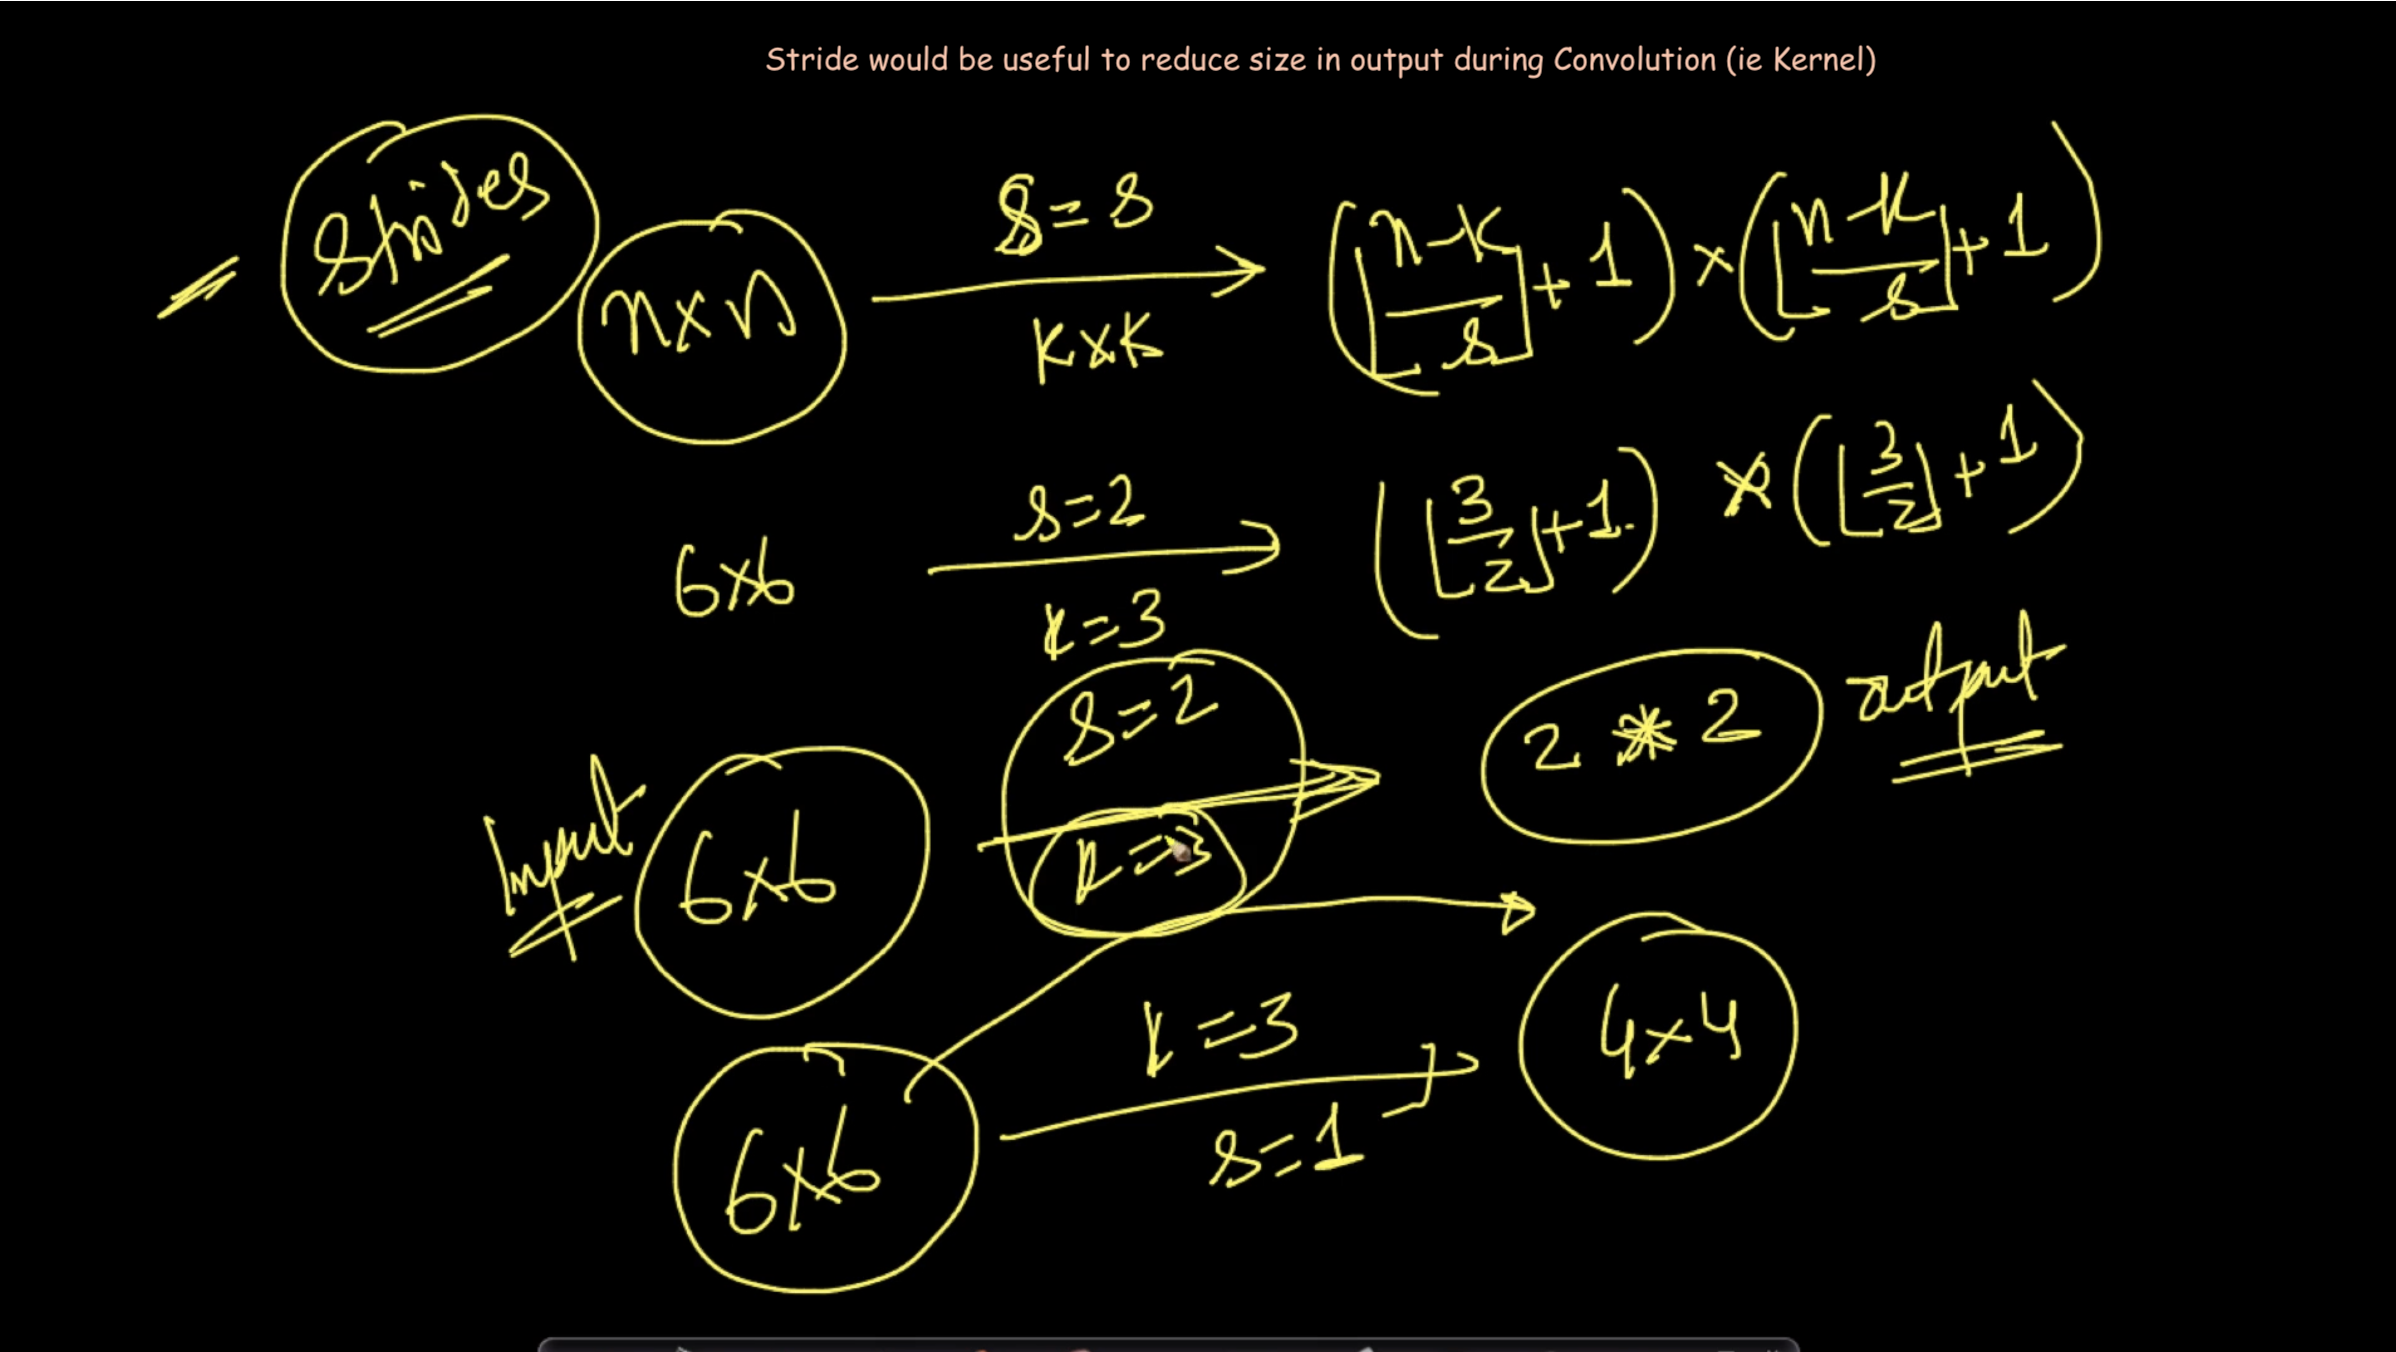 Stride would be useful to reduce size in output during Convolution (ie Kernel)
Strides
n×n
s=s
k×k
(⌊n-k/s⌋+1) × (⌊n-k/s⌋+1)
6×6
s=2
k=3
(⌊3/2⌋+1) * (⌊3/2⌋+1)
Input
6×6
s=2
k=3
2 * 2
output
6×6
k=3
s=1
4×4